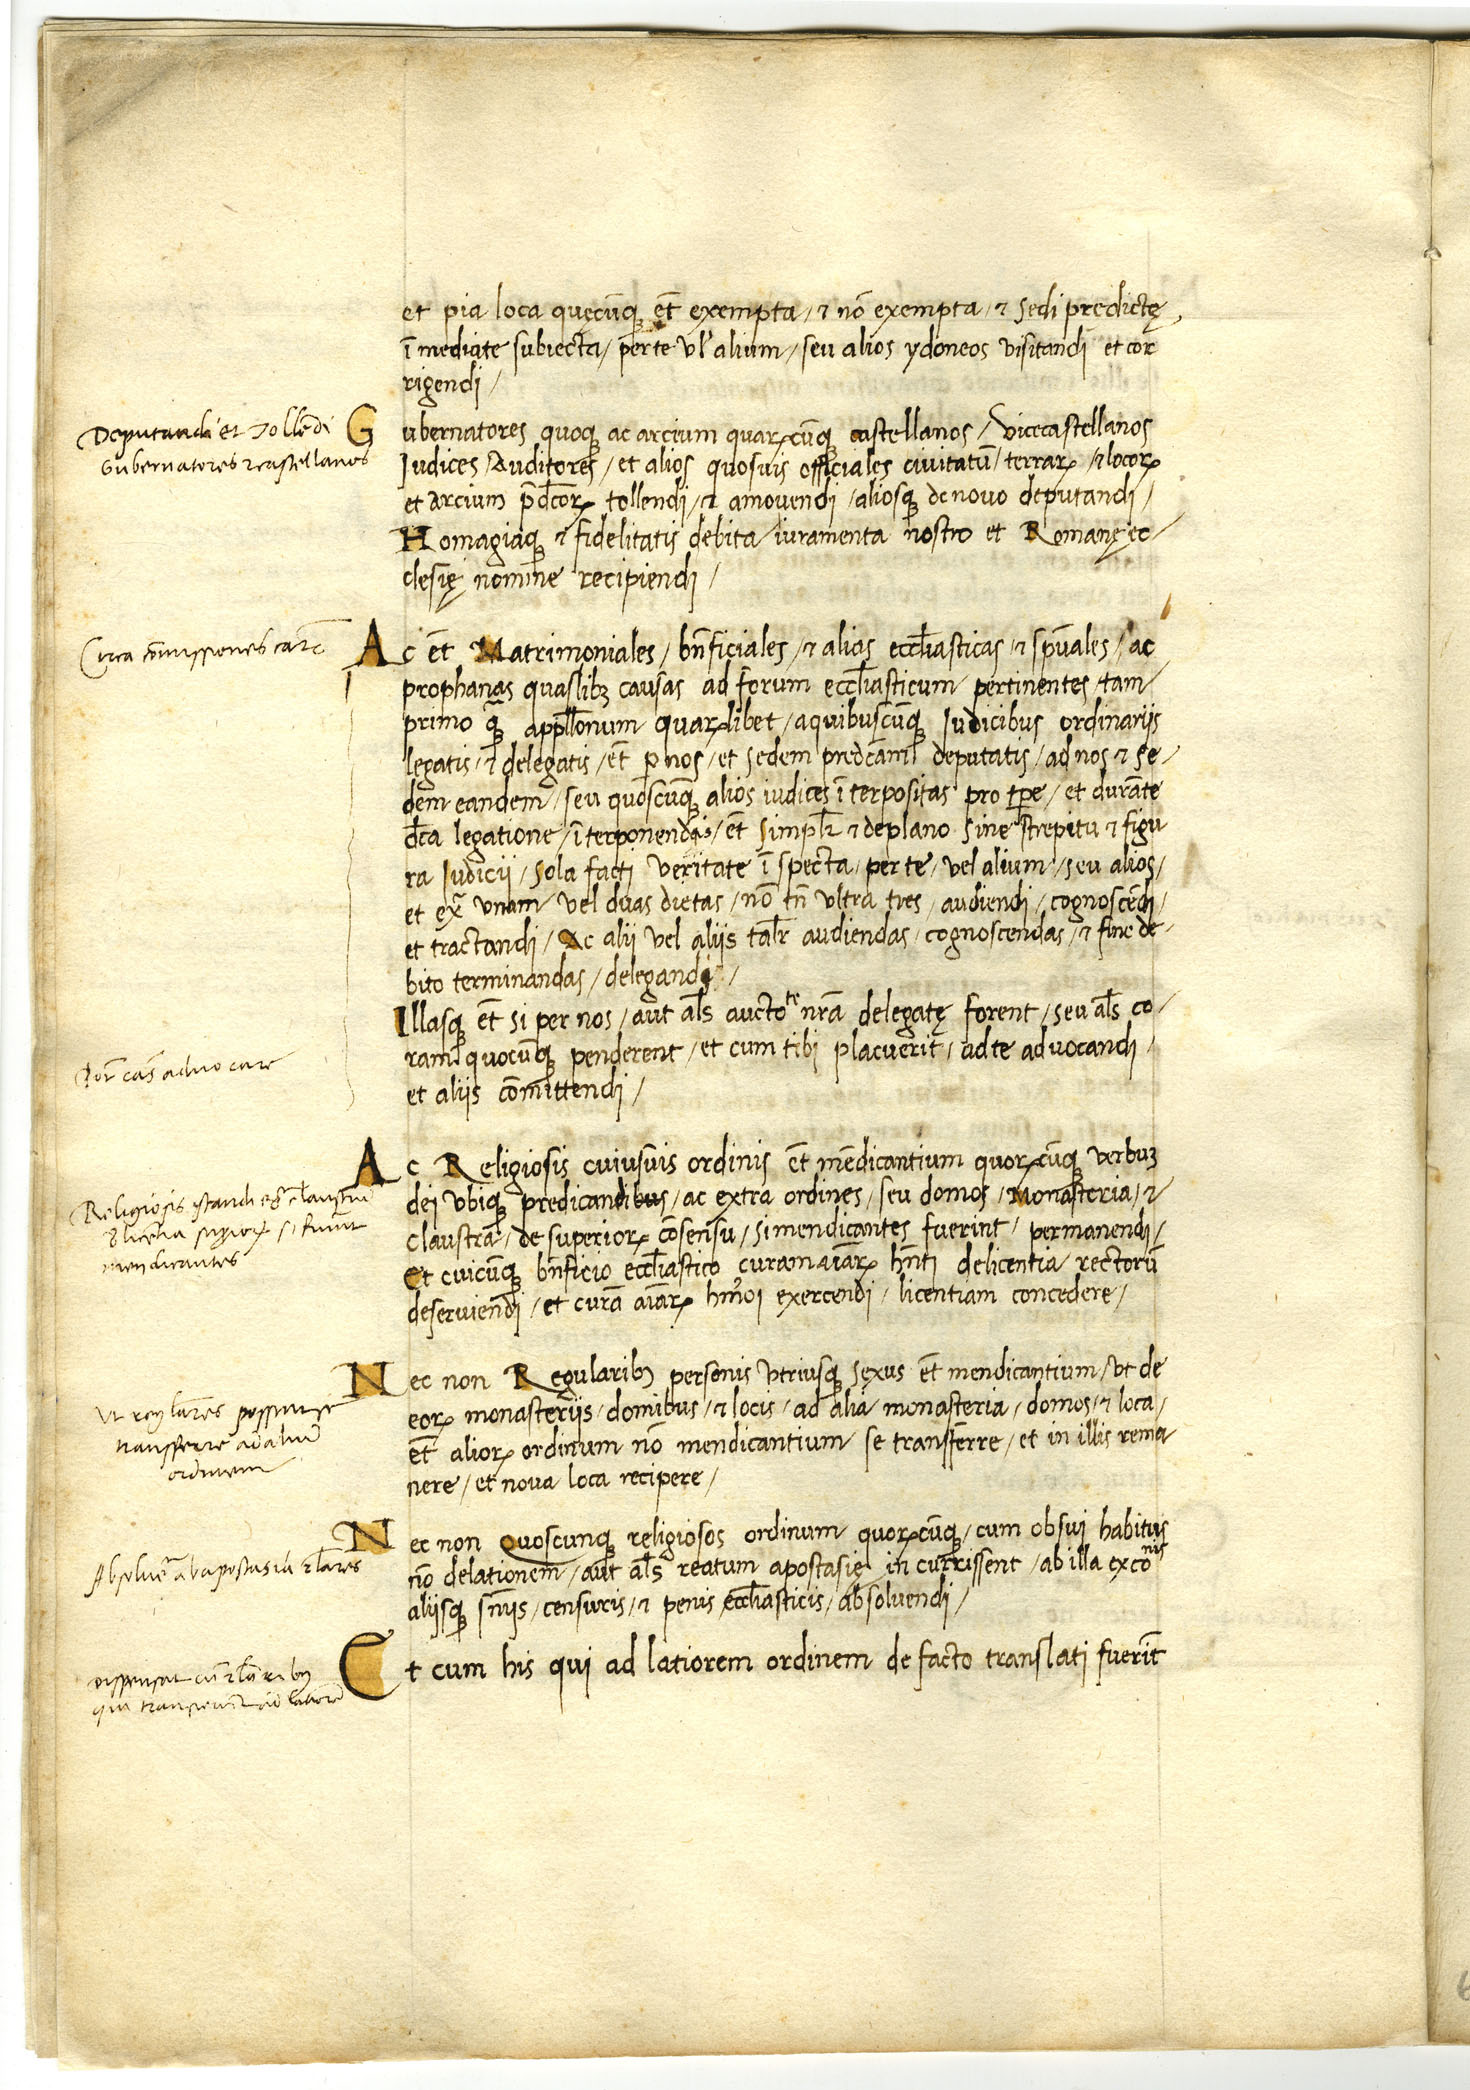 et pia loca quęcūq̨ et̄ exempta / ⁊ nō exempta / ⁊ Sedi predictę
ī mediate subiecta / per te vl' alium / seu alios ydoneos visitandi et cor
rigendi /
Deputandi et Tollēdi
Gubernatores ⁊ castellanos
Gubernatores quoq̨ ac arcium quarꝝcūq̨ castellanos / Vicecastellanos
Iudices / Auditores / et alios quosuis officiales ciuitatū / terrarꝝ / ⁊ locorꝝ
et Arcium p̄dc̄orꝝ tollendi / ⁊ amouendi / aliosq̨ de nouo deputandi /
Homagiaq̨ ⁊ fidelitatis debita iuramenta nostro et Romanę ec /
clesię nomine recipiendi /
Circa cōmissiones caus̄
Ac et̄ Matrimoniales / bn̄ficiales / ⁊ alias eccl̄iasticas / ⁊ spūales / ac
prophanas quaslibꝫ causas ad forum eccl̄iasticum pertinentes / tam
primo q̄ꝫ appll̄onum quarꝝlibet / a quibuscūq̨ Iudicibus ordinariis
legatis / ⁊ delegatis / et̄ p nos / et Sedem predc̄am deputatis / ad nos ⁊ Se /
dem eandem / seu quoscūq̨ alios iudices ī terpositas pro tp̄e / et durāte
dc̄a legatione / ī terponendas / et̄ Simplr̄ ⁊ de plano Sine strepitu ⁊ figu
ra Iudicii / Sola facti veritate ī specta / per te / vel alium / seu alios /
et ex̄ vnam vel duas dietas / nō tn̄ vltra tres / audiendi / cognoscēdi /
et tractandi / Ac alii vel aliis talr̄ audiendas / cognoscendas / ⁊ fine de /
bito terminandas / delegandi /
Illasq̨ et̄ si per nos / aut al̄s aucto^te nr̄a delegatę forent / seu al̄s co /
ram quocūq̨ penderent / et cum tibi placuerit / ad te aduocandi /
caūs aduocare
et aliis cōmittendi /
Ac Religiosis cuiusuis ordinis et̄ mēdicantium quorꝝcūq̨ verbuꝫ
Religiosis standi ex̄ claustrū
dei vbiq̨ predicandibus / ac extra ordines / seu domos / Monasteria / ⁊
d licentia superiorꝝ si fuerint
claustra / de superiorꝝ cōsensu / si mendicantes fuerint / permanendi /
mendicantes
Et cuicūq̨ bn̄ficio eccl̄iastico curam aīarꝝ hn̄ti de licentia rectorū
deseruiendi / et curā aīarꝝ hm̄oi exercendi / licentiam concedere /
Nec non Regularibꝫ personis vtriusq̨ sexus et̄ mendicantium / vt de
Ut reglares possint se
eorꝝ monasteriis / domibus / ⁊ locis / ad alia monasteria / domos / ⁊ loca /
transferre ad aliū
et̄ aliorꝝ ordinum nō mendicantium se transferre / et in illis rema
ordinem
nere / et noua loca recipere /
Nec non Quoscunq̨ religiosos ordinum quorꝝcūq̨ / cum ob sui habitus
Absoluer̄ ab apostasia rl̄ares
nō delationem / aut al̄s reatum apostasię incurrissent / ab illa exco^nis
aliisq̨ sn̄ijs / censuris / ⁊ penis eccl̄iasticis / absoluendi /
Dispensat cū rl̄aribꝫ
qui transierūt ad latiorē
Et cum his qui ad latiorem ordinem de facto translati fuerīt